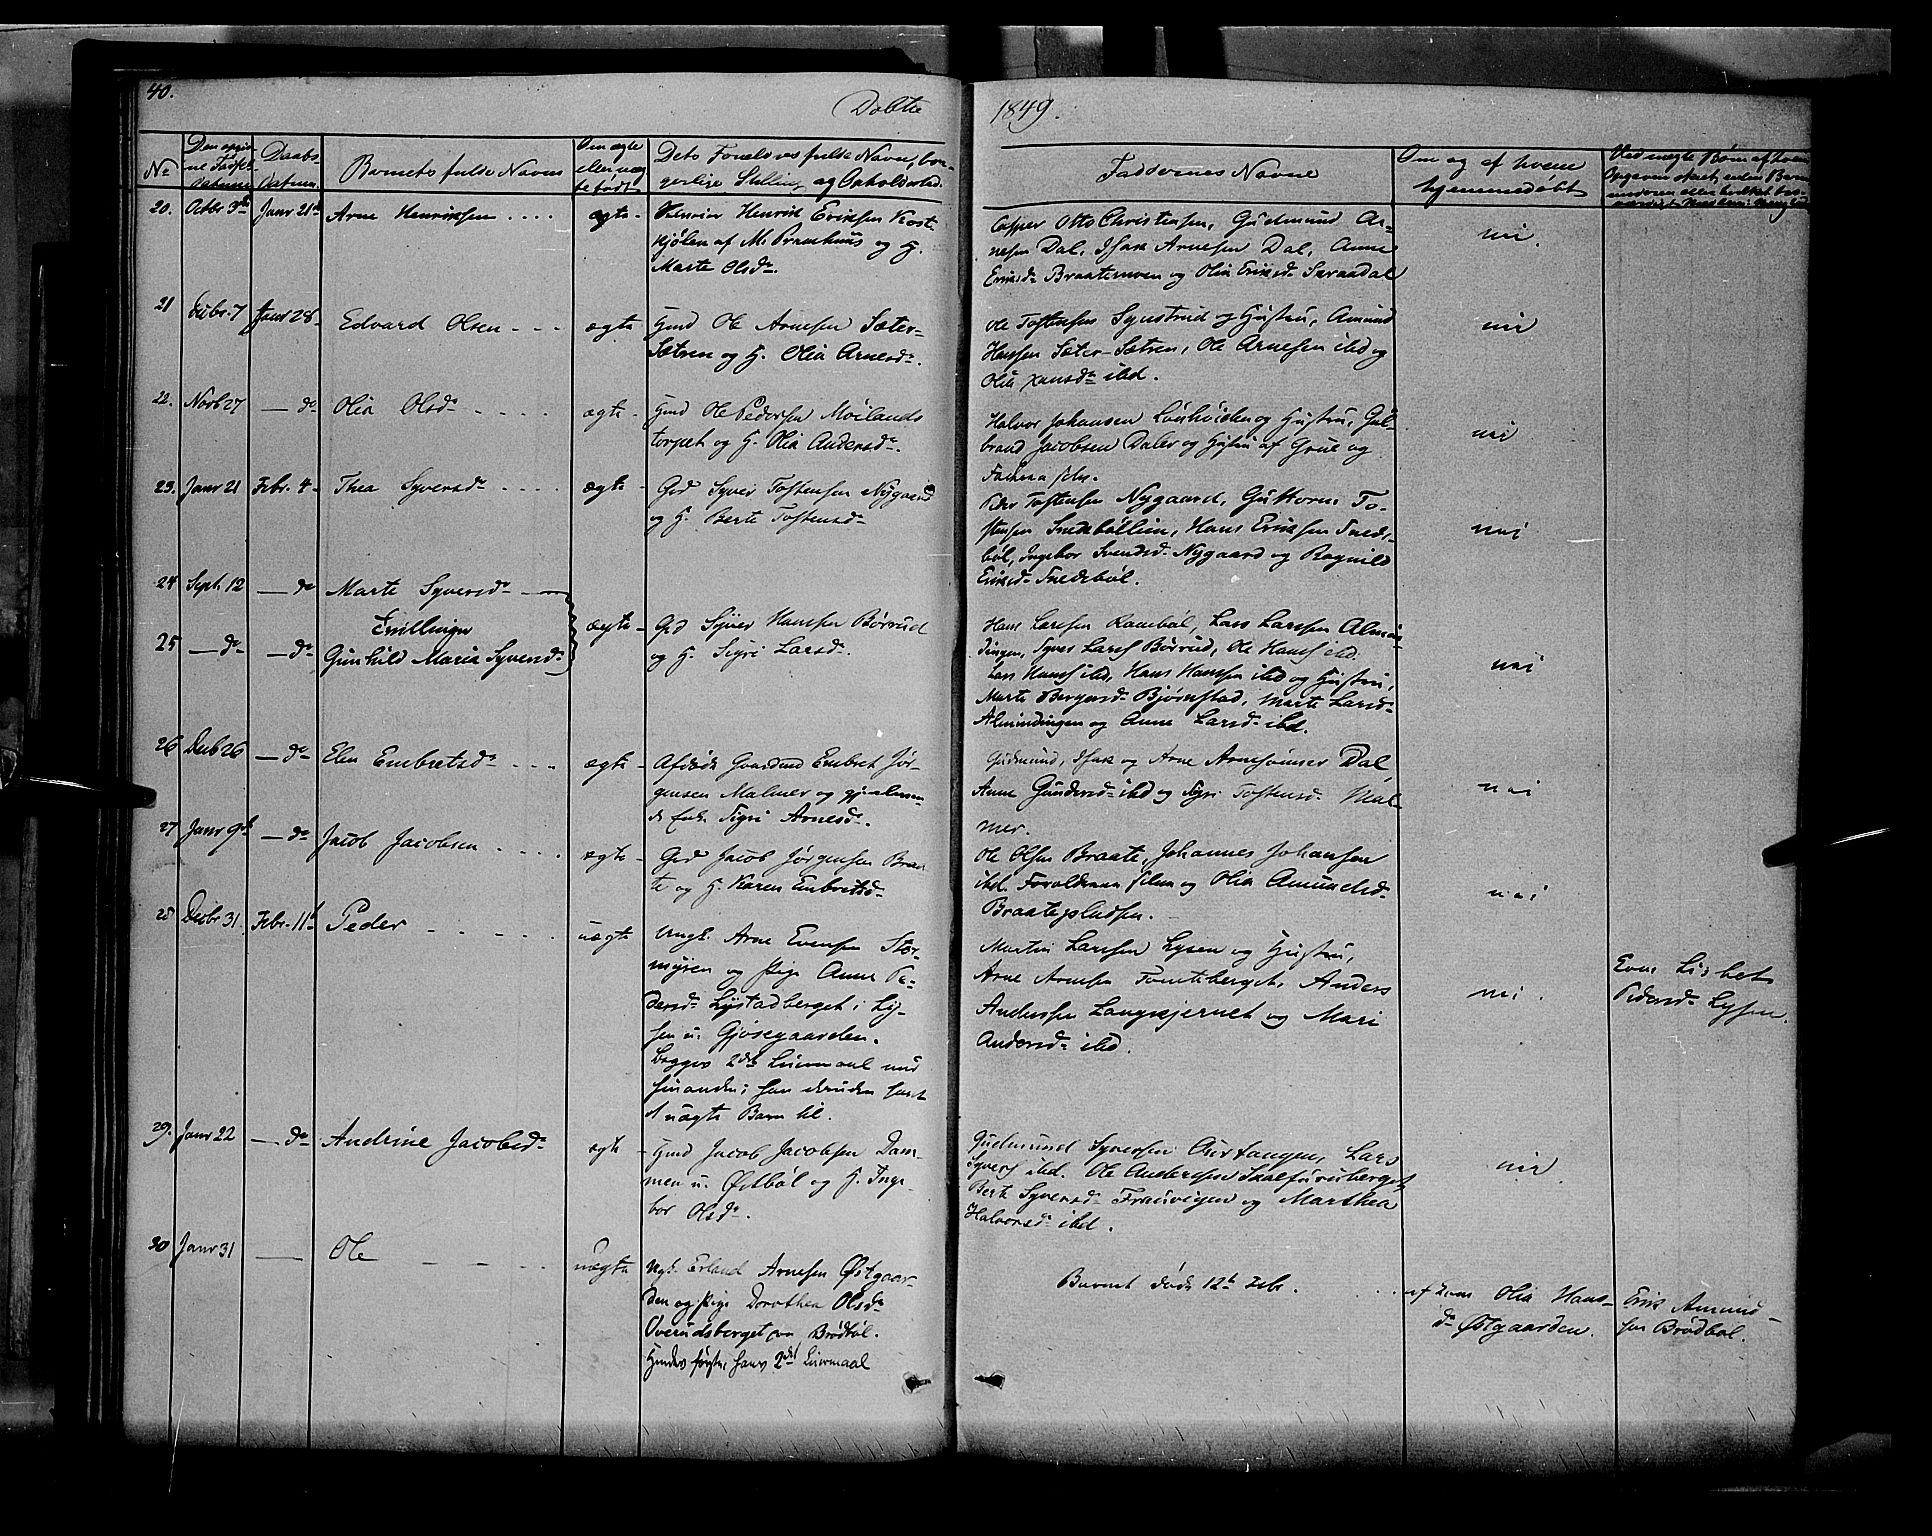 40.
Døbte
1849.
No
Den opgivne Fødselsdatum
Daabsdatum
Barnets fulde Navn
Om ægte eller uægte født
Dets Forældres fulde Navn, borgerlige Stilling og Opholdssted
Faddernes Navne
Om og af hvem hjemmedøbt
20. Octbr 3die Janr 21de Arne Henriksen . . . . ægte
Henrik Eriksen Kost-
kjølen af M. Pramhuus og H.
Marte Olsdr.
Casper Otto Christensen, Gudmund Ar-
nesen Dal, Isak Arnesen Dal, Anne
Eriksdr Braatemoen og Olia Eriksdr Svraadal
nei.
21 Janr 28 Edvard Olsen - - - ægte
Hmd Ole Arnesen Sæter-
Sætren og H. Olia Arnesdr.
Ole Tostensen Synstrud og Hustru, Amund
Hansen Sæter-Sætren, Ole Arnesen ibd og
Olia Hansdr ibd.
nei
22. Novb 27 — do Olia Olsdr - - - - ægte
Hmd Ole Pedersen Moilands
torpet og H. Olia Andersdr.
Halvor Johansen Løvhøiden og Hustru, Gul-
brand Jacobsen Daler og Hustru af Grue og
nei
23. Janr 21 Febr. 4 Thea Syversdr - - - - ægte
Grd Syver Tostensen Nygaard
og H. Berte Tostensdr
Peder Tostensen Nygaard, Guttorm To-
stensen Snedsbøllien, Hans Eriksen Sneds-
bøl, Ingebor Svendsdr Nygaard og Ragnild
Eriksdr Snedsbøl.
nei
24 Sept. 12 — do Marte Syversdr
Tvillinger
25 — do — do Gunhild Maria Syversdr
ægte
Grd Syver Hansen Børrud
og H. Sigri Larsdr.
Hans Larsen Ramsbøl, Lars Larsen Almin-
dingen, Syver Lars. Børrud, Ole Hans. ibd.
Lars Hans. ibd, Hans Hansen ibd og Hustru,
Marte Bergersdr Bjørnstad, Marte Larsdr
Almindingen og Anne Larsdr ibd.
nei
26 Decb 26 — do Elen Embretsdr . . . ægte
Afdøde Gaardmd Embret Jør-
gensen Malmer og
Enke Sigri Arnesdr.
Gudmund, Isak og Arne Arnesønner Dal,
Anne Gundersdr ibd og Sigri Tostensdr Mal-
mer.
nei
27 Janr 9de — do Jacob Jacobsen . . . . ægte
Grd Jacob Jørgensen Braa-
te og H. Karen Embretsdr
Ole Olsen Braate, Johannes Johansen
ibd. Forældrene selv og Olia Amundsdr
Braatepladsen.
nei
28 Decbr 31 Febr. 11te Peder - - - - - uægte
Ungk. Arne Evensen Stor-
myren og Pige Anne Pe-
dersdr Lystadberget i Ly-
sen u. Gjøsegaarden.
Begges 2det Leiermaal med
hinanden; han desuden havt
1 uægte Barn til.
Martin Larsen Lysen og Hustru,
Arne Arnesen Tomteberget, Anders
Andersen Langkjernet og Mari
Andersdr ibd.
nei.
Lisbet
Pedersdr Lysen.
29. Janr 22 — do Andrine Jacobsdr ægte
Hmd Jacob Jacobsen Dam-
men u. Østbøl og H. Inge-
bor Olsdr.
Gudmund Syversen Aurtangen, Lars
Syvers. ibd. Ole Andersen Skalfuruberget,
Berte Syversdr og Marthea
Halvorsdr ibd.
nei
30 Janr 31 — Ole - - - - - uægte
Ungk. Erland Arnesen Østgaar-
den og Pige Dorothea Olsdr
Overudsberget Brødbøl.
Hendes første, hans 2det Leiermaal
Barnet døde 12te Febr.
af Olia Hans-
dr Østgaarden.
Erik Amund-
sen Brødbøl.